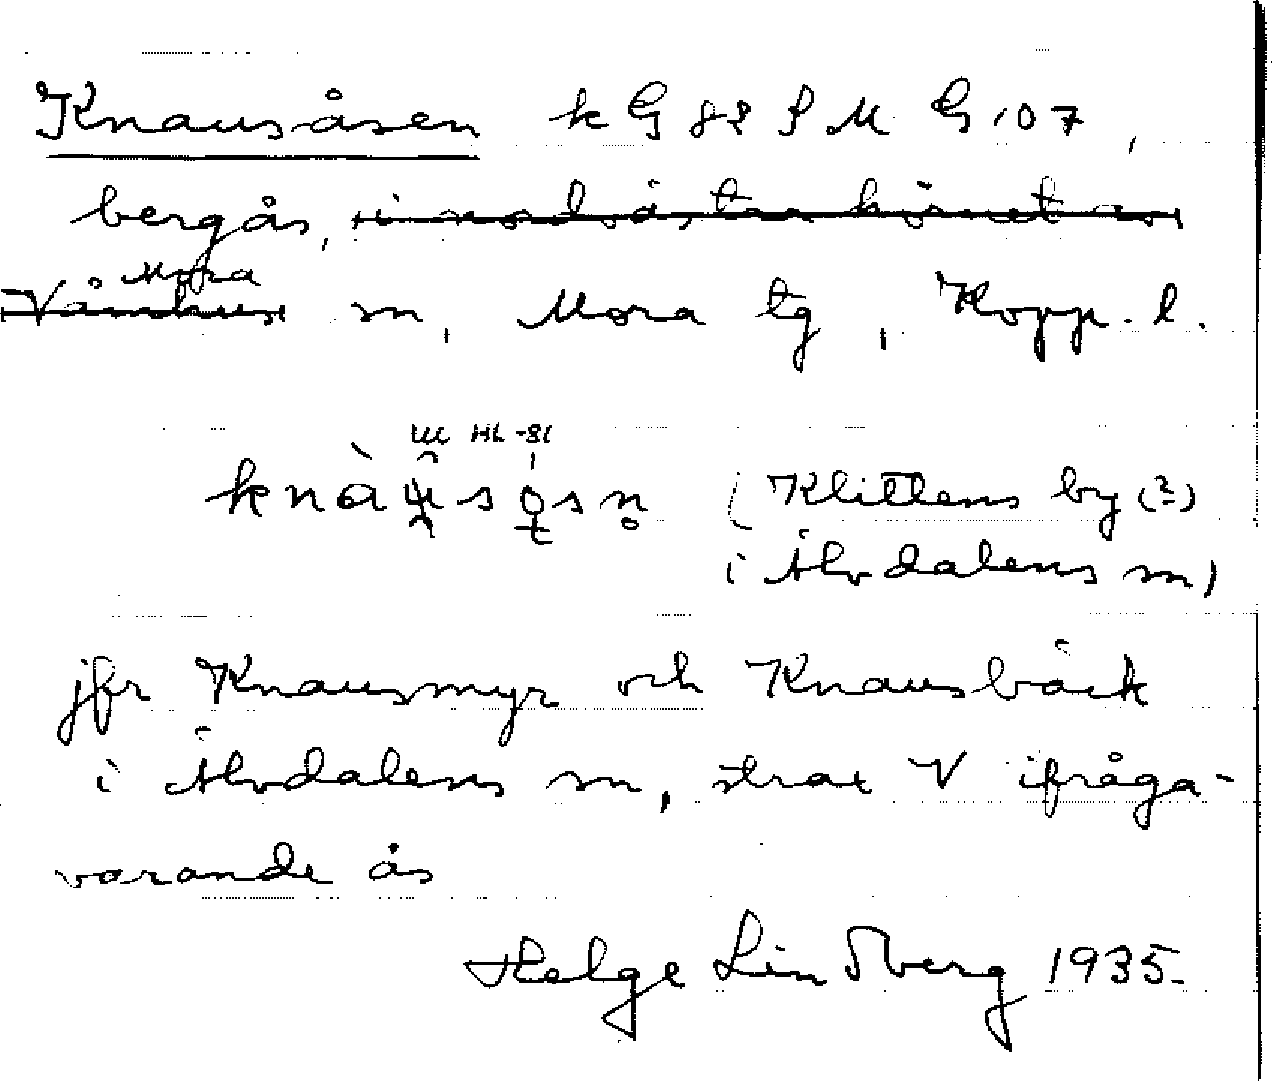 Knausåsen k G 82 S M G 107,
bergås, i nordöstra hörnet av
Mora
Våmhus sn, Mora tg, Kopp. l.
HL -81
(Klittens by (?)
i Älvdalens sn)
jfr Knausmyr och Knausbäck
i Älvdalens sn, strax V ifråga-
varande ås
Helge Lindberg 1935.